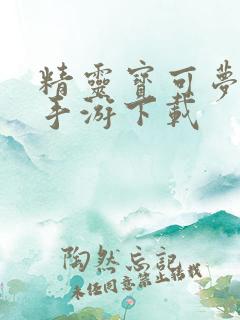 精靈寶可夢
手游下載
陶然忘記
未经同意禁止转载